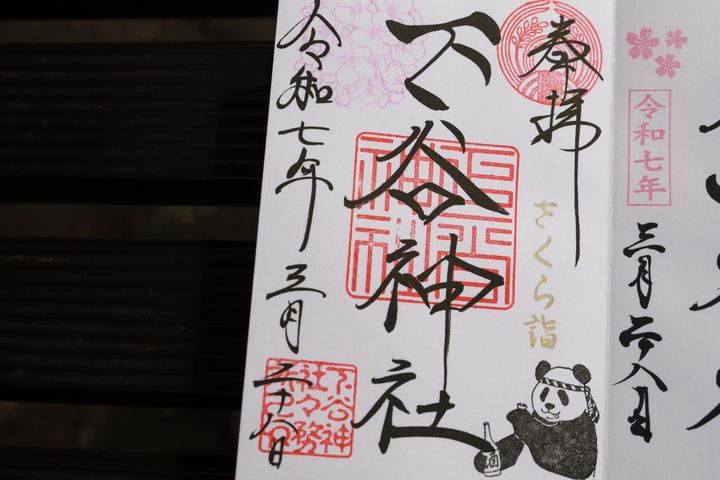 奉拝
さくら詣
下谷神社
下谷神
社々務
酒
令和七年三月二十八日
令和七年
三月二十八日